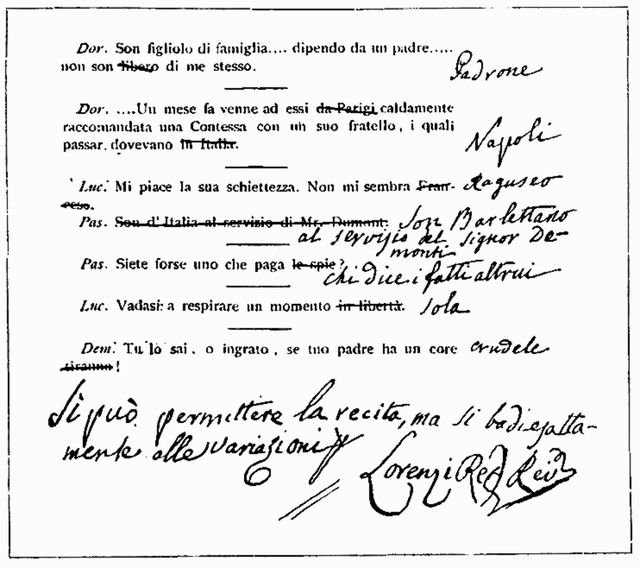 Dor. Son figliolo di famiglia.... dipendo da un padre.....
non son libero di me stesso. Padrone
Dor. ....Un mese fa venne ad essi da Parigi caldamente
raccomandata una Contessa con un suo fratello, i quali
passar dovevano in Italia. Napoli
Luc. Mi piace la sua schiettezza. Non mi sembra Fran- Raguseo
cese.
Pas. Son d'Italia al servizio di Mr. Dumant. Son Barlettano
al servizio del Signor De-
monti
Pas. Siete forse uno che paga le spie? chi dice i fatti altrui
Luc. Vadasi a respirare un momento in libertà. sola
Dem. Tu lo sai, o ingrato, se tuo padre ha un core crudele
tiranno!
Si può permettere la recita, ma si badi esatta-
mente alle variazioni
Lorenzi